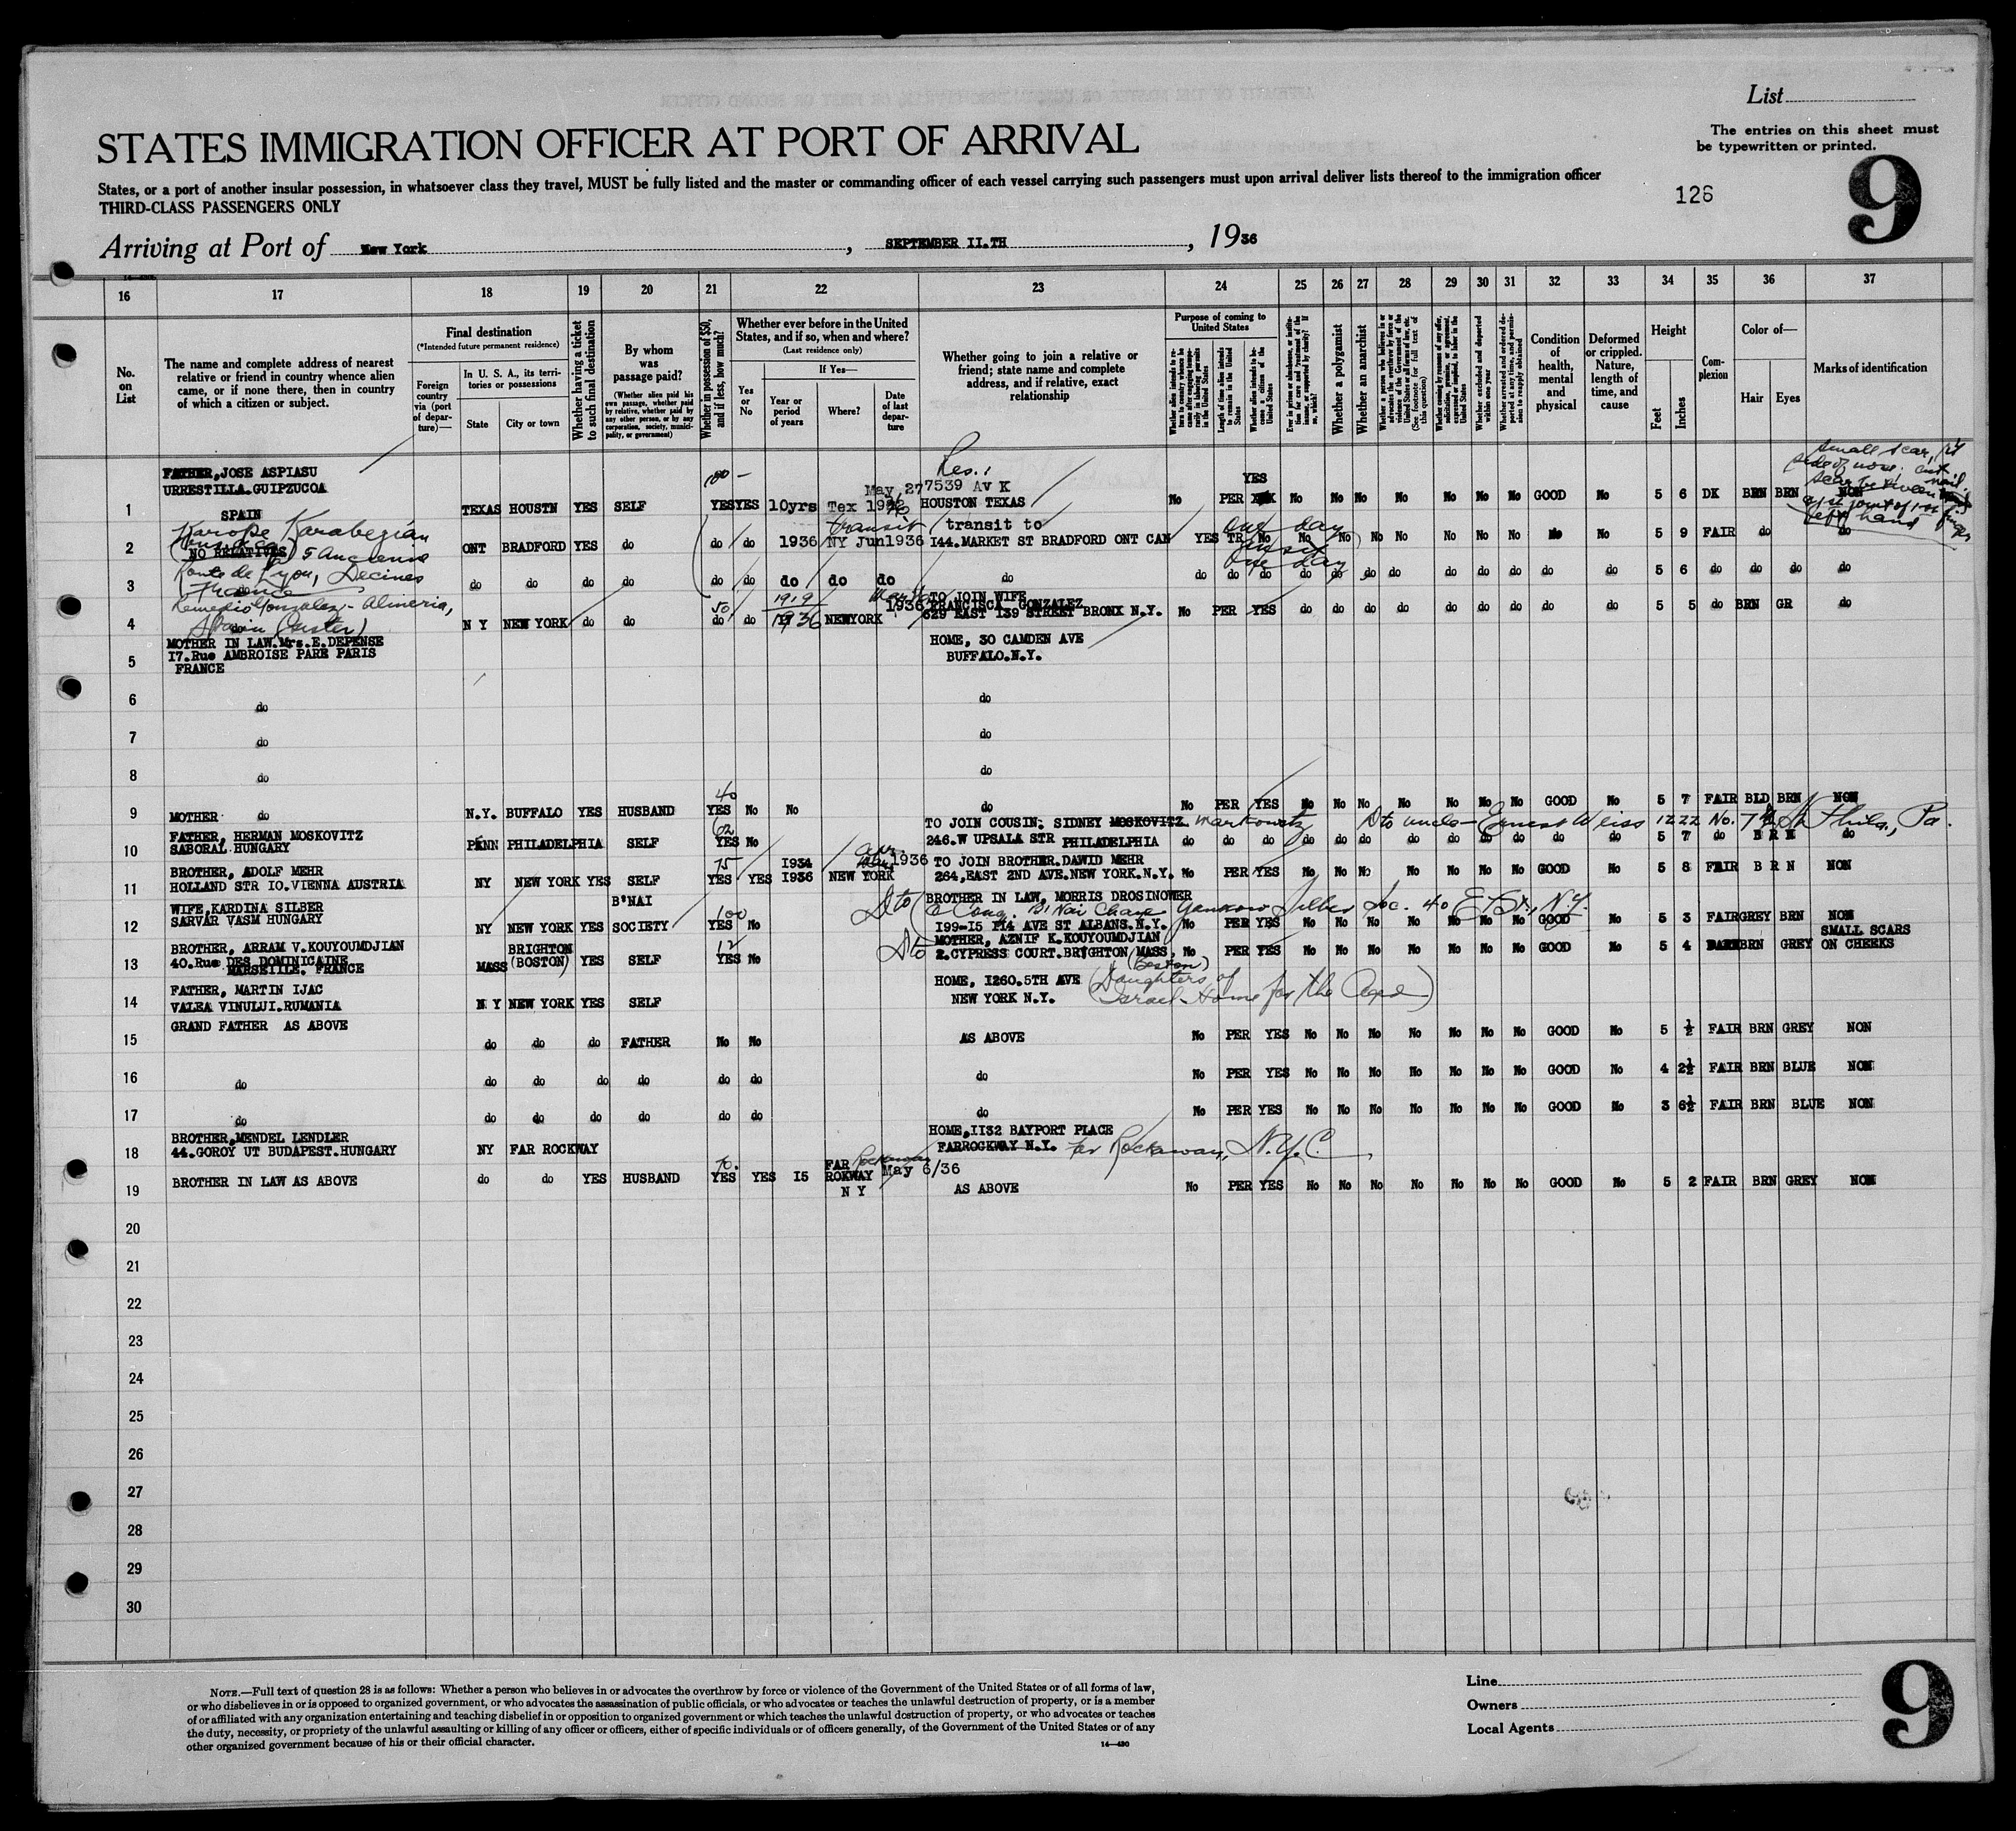 List
STATES IMMIGRATION OFFICER AT PORT OF ARRIVAL
The entries on this sheet must
be typewritten or printed.
States, or a port of another insular possession, in whatsoever class they travel, MUST be fully listed and the master or commanding officer of each vessel carrying such passengers must upon arrival deliver lists thereof to the immigration officer
THIRD-CLASS PASSENGERS ONLY
126
9
Arriving at Port of New York, SEPTEMBER II.TH, 1936
16 17 18 19 20 21 22 23 24 25 26 27 28 29 30 31 32 33 34 35 36 37
No. on List
The name and complete address of nearest relative or friend in country whence alien came, or if none there, then in country of which a citizen or subject.
Final destination
(*Intended future permanent residence)
Foreign country via (port of departure)—
In U. S. A., its territories or possessions
State
City or town
Whether having a ticket to such final destination
By whom was passage paid?
(Whether alien paid his own passage, whether paid by relative, whether paid by any other person, or by any corporation, society, municipality, or government)
Whether in possession of $50, and if less, how much?
Whether ever before in the United States, and if so, when and where?
(Last residence only)
Yes or No
If Yes—
Year or period of years
Where?
Date of last departure
Whether going to join a relative or friend; state name and complete address, and if relative, exact relationship
Purpose of coming to United States
Length of time alien intends to remain in the United States
Whether alien intends to become a citizen of the United States
Whether a polygamist
Whether an anarchist
Whether excluded and deported within one year
Condition of health, mental and physical
Deformed or crippled. Nature, length of time, and cause
Height
Feet
Inches
Complexion
Color of—
Hair
Eyes
Marks of identification
FATHER, JOSE ASPIASU
URRESTILLA.GUIPZUCOA
SPAIN
1 TEXAS HOUSTN YES SELF 100 — YES YES 10yrs Tex May 27 Res. 7539 Av K HOUSTON TEXAS No PER YES No No No No No No No GOOD No 5 6 DK BRN BRN
small scar, rt side of nose
left hand
Karope Karabegian
NO RELATIVES
5 Ancienne
Route de Lyon, Decines
France
2 ONT BRADFORD YES do do do 1936 NY Jun 1936 transit transit to I44.MARKET ST BRADFORD ONT CAN YES TR No one day No No No No No No No No No 5 9 FAIR do do
3 do do do do do do do do do do do do do one day do do do do do do do do do 5 6 do do do do
Remedio Gonzalez - Almeria,
Spain (sister)
4 N Y NEW YORK do do 50 do do 1919 1936 NEWYORK 1936 TO JOIN WIFE
FRANCISCA GONZALEZ
629 EAST 139 STREET BRONX N.Y. No PER YES do do do do do do do do do 5 5 do BRN GR do
5 MOTHER IN LAW.Mrs.E.DEPENSE
I7.Rue AMBROISE PARE PARIS
FRANCE
HOME, 30 CAMDEN AVE
BUFFALO.N.Y.
6 do do
7 do do
8 do do
9 MOTHER do N.Y. BUFFALO YES HUSBAND 40 YES No No do No PER YES No No No No No No No GOOD No 5 7 FAIR BLD BRN NON
10 FATHER, HERMAN MOSKOVITZ
SABORAL.HUNGARY
PENN PHILADELPHIA SELF 62 YES No
TO JOIN COUSIN; SIDNEY MOSKOVITZ Markowitz Dto uncle - Ernest Weiss 1222 No. 7th St Phila., Pa.
246.W UPSALA STR PHILADELPHIA do do do do do do do do do do do do 5 7 do BRN do
11 BROTHER, ADOLF MEHR
HOLLAND STR IO.VIENNA AUSTRIA
NY NEW YORK YES SELF 75 YES YES I934 I936 NEW YORK 1936
TO JOIN BROTHER.DAWID MEHR
264,EAST 2ND AVE.NEW YORK.N.Y. No PER YES No No No No No No No GOOD No 5 8 FAIR BRN NON
12 WIFE,KARDINA SILBER
SARVAR VASM HUNGARY
NY NEW YORK YES B'NAI SOCIETY 100 YES No
Dto BROTHER IN LAW, MORRIS DROSINOWER
I99-I5 II4 AVE ST ALBANS.N.Y. No PER YES No No No No No No No GOOD No 5 3 FAIR GREY BRN NON
13 BROTHER, ARRAM V.KOUYOUMDJIAN
40.Rue DES DOMINICAINE
MARSEILLE. FRANCE
MASS BRIGHTON (BOSTON) YES SELF 12 YES No
Dto MOTHER, AZNIF K.KOUYOUMDJIAN
2.CYPRESS COURT.BRIGHTON MASS. (Boston) No PER YES No No No No No No No GOOD No 5 4 DARK BRN GREY SMALL SCARS ON CHEEKS
14 FATHER, MARTIN IJAC
VALEA VINULUI.RUMANIA
N Y NEW YORK YES SELF
HOME, I260.5TH AVE
NEW YORK N.Y. (Daughters of Israel Home for the Aged)
15 GRAND FATHER AS ABOVE do do do FATHER No No AS ABOVE No PER YES No No No No No No No GOOD No 5 ½ FAIR BRN GREY NON
16 do do do do do do do do No PER YES No No No No No No No GOOD No 4 2½ FAIR BRN BLUE NON
17 do do do do do do do do No PER YES No No No No No No No GOOD No 3 6½ FAIR BRN BLUE NON
18 BROTHER,MENDEL LENDLER
44.GOROY UT BUDAPEST.HUNGARY
NY FAR ROCKWAY
HOME,II32 BAYPORT PLACE
FARROCKWAY N.Y. Far Rockaway, N.Y.C.
19 BROTHER IN LAW AS ABOVE do do YES HUSBAND 70. YES YES I5 FAR ROKWAY N Y Rockaway May 6/36 AS ABOVE No PER YES No No No No No No No GOOD No 5 2 FAIR BRN GREY NON
20
21
22
23
24
25
26
27
28
29
30
NOTE.—Full text of question 28 is as follows: Whether a person who believes in or advocates the overthrow by force or violence of the Government of the United States or of all forms of law,
or who disbelieves in or is opposed to organized government, or who advocates the assassination of public officials, or who advocates or teaches the unlawful destruction of property, or is a member
of or affiliated with any organization entertaining and teaching disbelief in or opposition to organized government or which teaches the unlawful destruction of property, or who advocates or teaches
the duty, necessity, or propriety of the unlawful assaulting or killing of any officer or officers, either of specific individuals or of officers generally, of the Government of the United States or of any
other organized government because of his or their official character.
14—430
Line
Owners
Local Agents
9